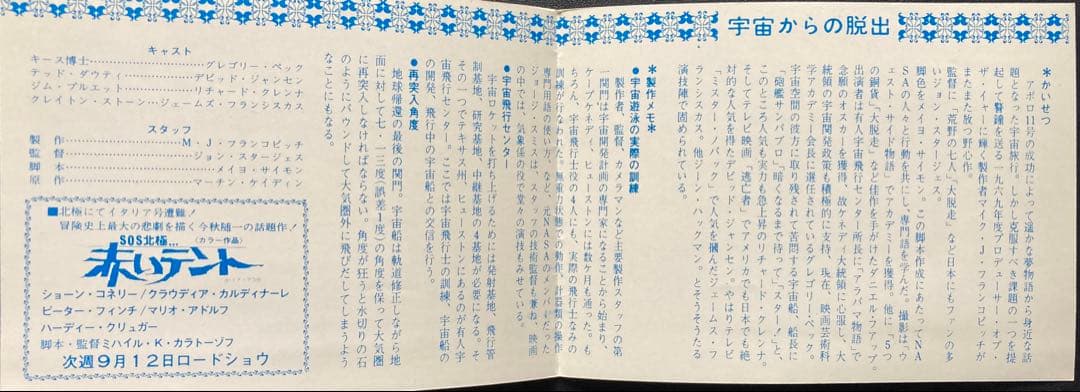 宇宙からの脱出
*かいせつ
アポロ11号の成功によって遥かな夢物語から身近な話
題となった宇宙旅行。しかし克服すべき課題の一つを提
起して警鐘を送る一九六九年度プロデューサー・オブ・
ザ・イヤーに輝く製作者マイク・J・フランコビッチが
またまた放つ野心作。
監督に「荒野の七人」「大脱走」など日本にもファンの多
いジョン・スタージェス。
脚色をメイヨ・サイモン。この脚本作成にあたってNA
SAの人々と行動を共にし、専門語を学んだ。撮影は「ウ
ェスト・サイド物語」でアカデミーを獲得。他に「5つ
の銅貨」「大脱走」など佳作を手がけたダニエル・ファップ。
出演者は有人宇宙飛行センター所長に「アラバマ物語」で
念願のオスカーを獲得、故ケネディ大統領に心服し、大
統領の宇宙開発政策も積極的に支持、現在、映画芸術科
学アカデミー会長に選任されているグレゴリー・ペック。
宇宙空間の彼方に取り残されて苦悶する宇宙船、船長に
「砲艦サンパブロ」「暗くなるまで待って」「スター!」と、
このところ人気も実力も急上昇のリチャード・クレンナ。
そしてテレビ映画「逃亡者」でアメリカでも日本でも絶
対的な人気を得たデビッド・ジャンセン。やはりテレビ
「ミスター・ノバック」で人気を摑んだジェームス・フ
ランシスカス。他ジーン・ハックマン、とそうそうたる
演技陣で固められている。
*製作メモ*
●宇宙遊泳の実際の訓練
製作者、監督、カメラマンなど主要製作スタッフの第
一関門は宇宙開発計画の専門家になることから始まり、
ケープケネディ、ヒューストンには数ケ月も通った。も
ちろん、宇宙飛行士役の4人にも、実際の飛行士なみの
訓練が行なわれた。無重力状態での動作、計器類の操作
専門用語の使い方など。元NASAのメンバーだった
ジョージ・スミスは、スタッフの技術監督も兼ね、映画
の中では、気象係の役で堂々の演技もみせている。
●宇宙飛行センター
宇宙ロケットを打ち上げるためには発射基地、飛行管
制基地、研究基地、中継基地の4基地が必要になる。そ
その一つでテキサス州、ヒューストンにあるのが有人宇
宙飛行センター。ここでは宇宙飛行士の訓練、宇宙船
の開発、飛行中の宇宙船との交信を行う。
●再突入角度
地球帰還の最後の関門。宇宙船は軌道修正しながら地
面に対して七・一三度(誤差1度)の角度を保って大気圏
に再突入しなければならない。角度が狂うと水切りの石
のようにバウンドして大気圏外に飛びだしてしまうよう
なことにもなる。
キャスト
キース博士――グレゴリー・ペック
テッド・ダウティ――デビッド・ジャンセン
ジム・プルエット――リチャード・クレンナ
クレイトン・ストーン――ジェームズ・フランシスカス
スタッフ
製作――M・J・フランコビッチ
監督――ジョン・スタージェス
脚本――メイヨ・サイモン
原作――マーチン・ケイディン
■北極にてイタリア号遭難!
冒険史上最大の悲劇を描く今秋随一の話題作!
SOS北極…
(カラー作品)
赤いテント
ショーン・コネリー/クラウディア・カルディナーレ
ピーター・フィンチ/マリオ・アドルフ
ハーディー・クリュガー
脚本・監督ミハイル・K・カラトーゾフ
次週9月12日ロードショウ